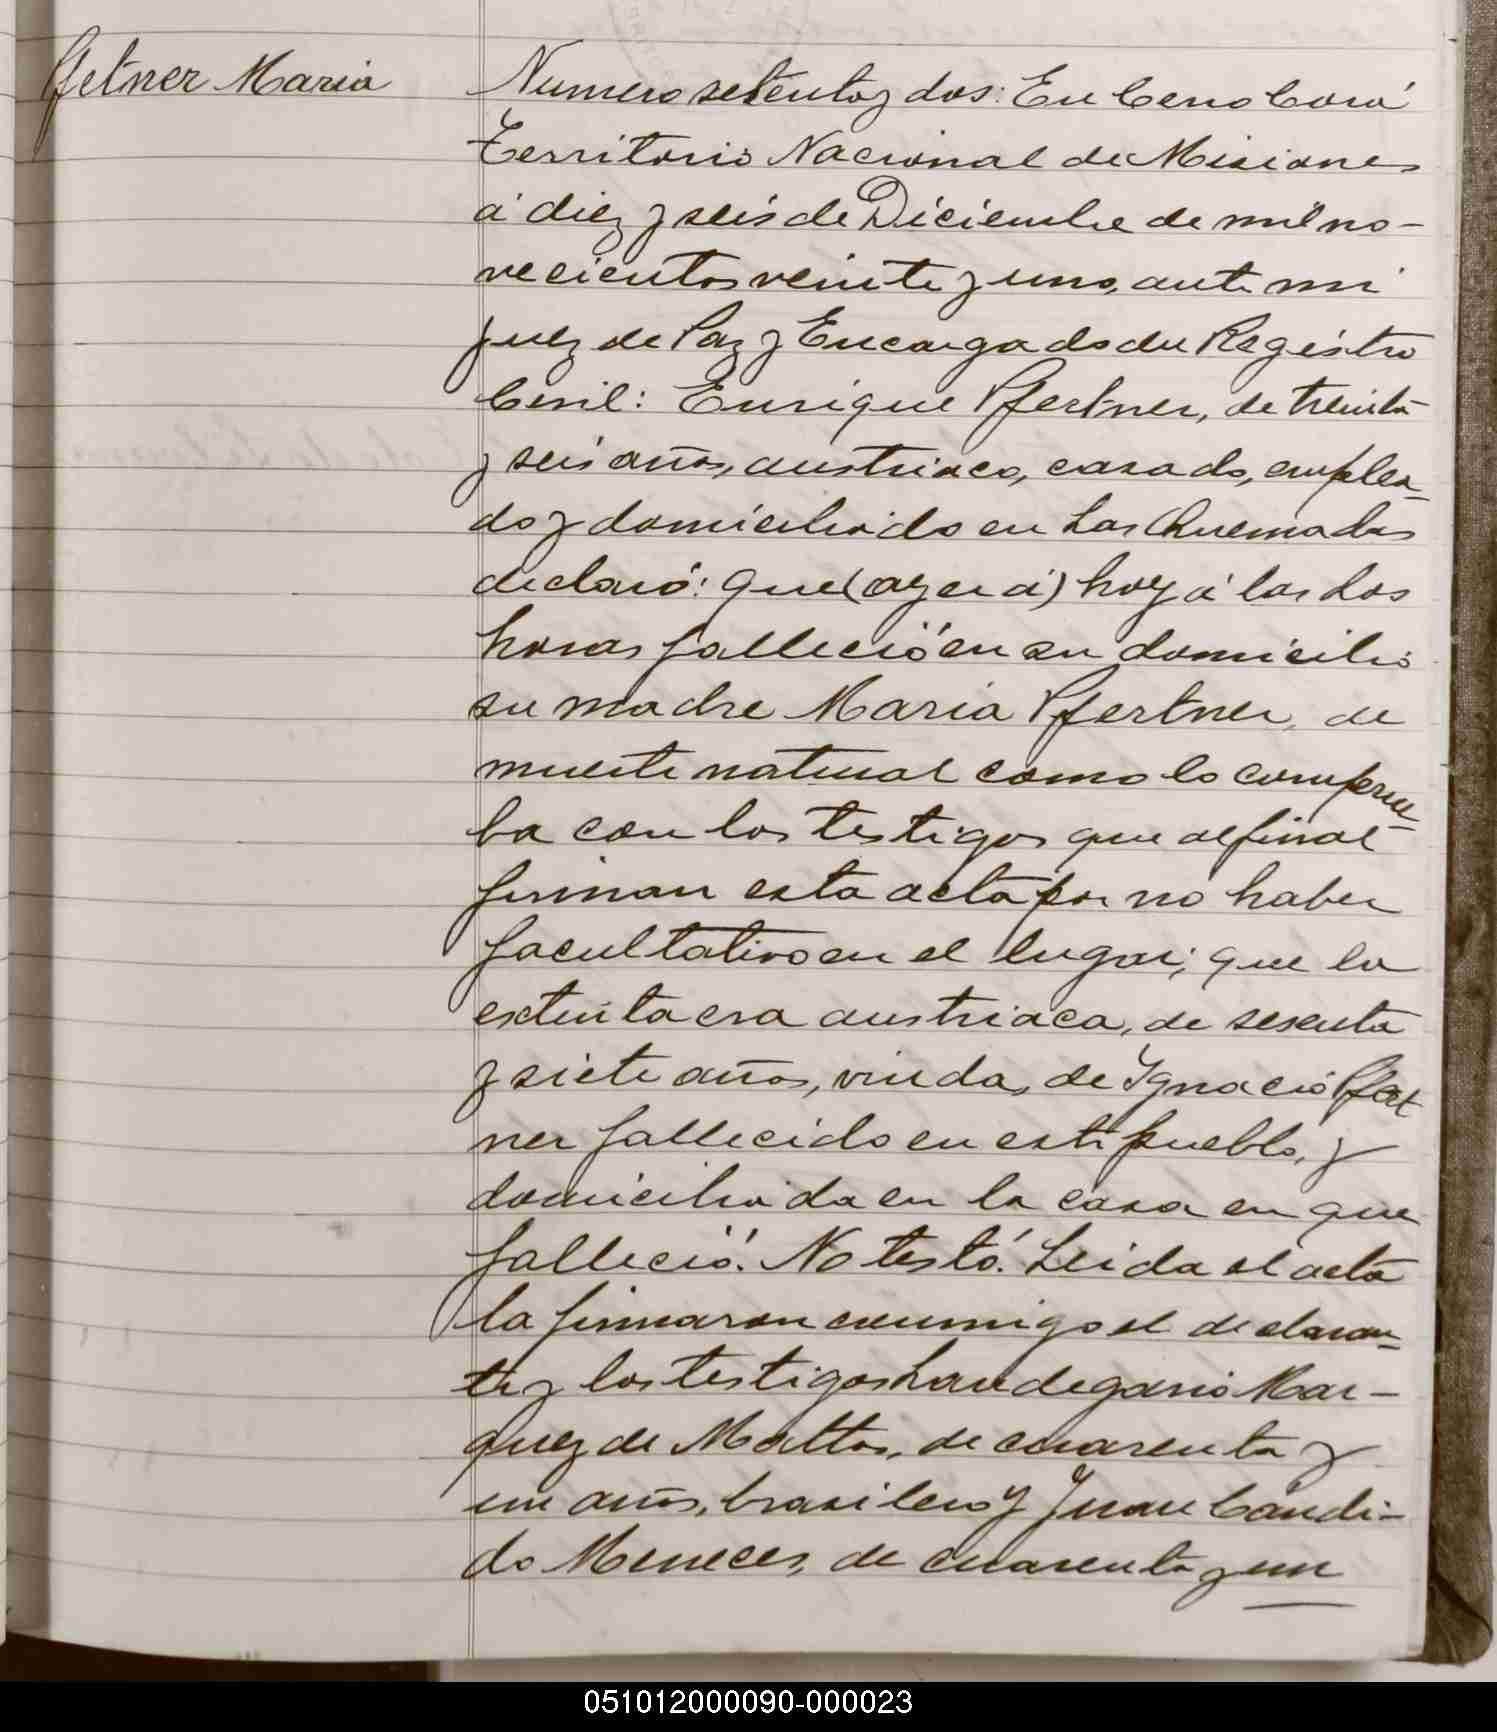 Pfetner Maria
Numero setenta y dos: En Cerro Corá
Territorio Nacional de Misiones
á diez y seis de Diciembre de mil no-
vecientos veinte y uno, ante mi
juez de Paz y Encargado del Registro
Civil: Enrique Pfertner, de treinta
y seis años, austriaco, casado, emplea-
do y domiciliado en Las Quemadas
declaró: que (ayer á) hoy á las dos
horas falleció en su domicilio
su madre Maria Pfertner, de
muerte natural como lo comprue-
ba con los testigos que al final
firman esta acta por no haber
facultativo en el lugar; que la
extinta era austriaca, de sesenta
y siete años, viuda, de Ignacio Pfert
ner fallecido en este pueblo, y
domiciliada en la casa en que
falleció. No testó. Leida el acta
la firmaron conmigo el declaran-
te y los testigos Laudegario Mar-
quez de Mattos, de cuarenta y
un años, brasilero y Juan Cándi-
do Meneces, de cuarenta y un
051012000090-000023